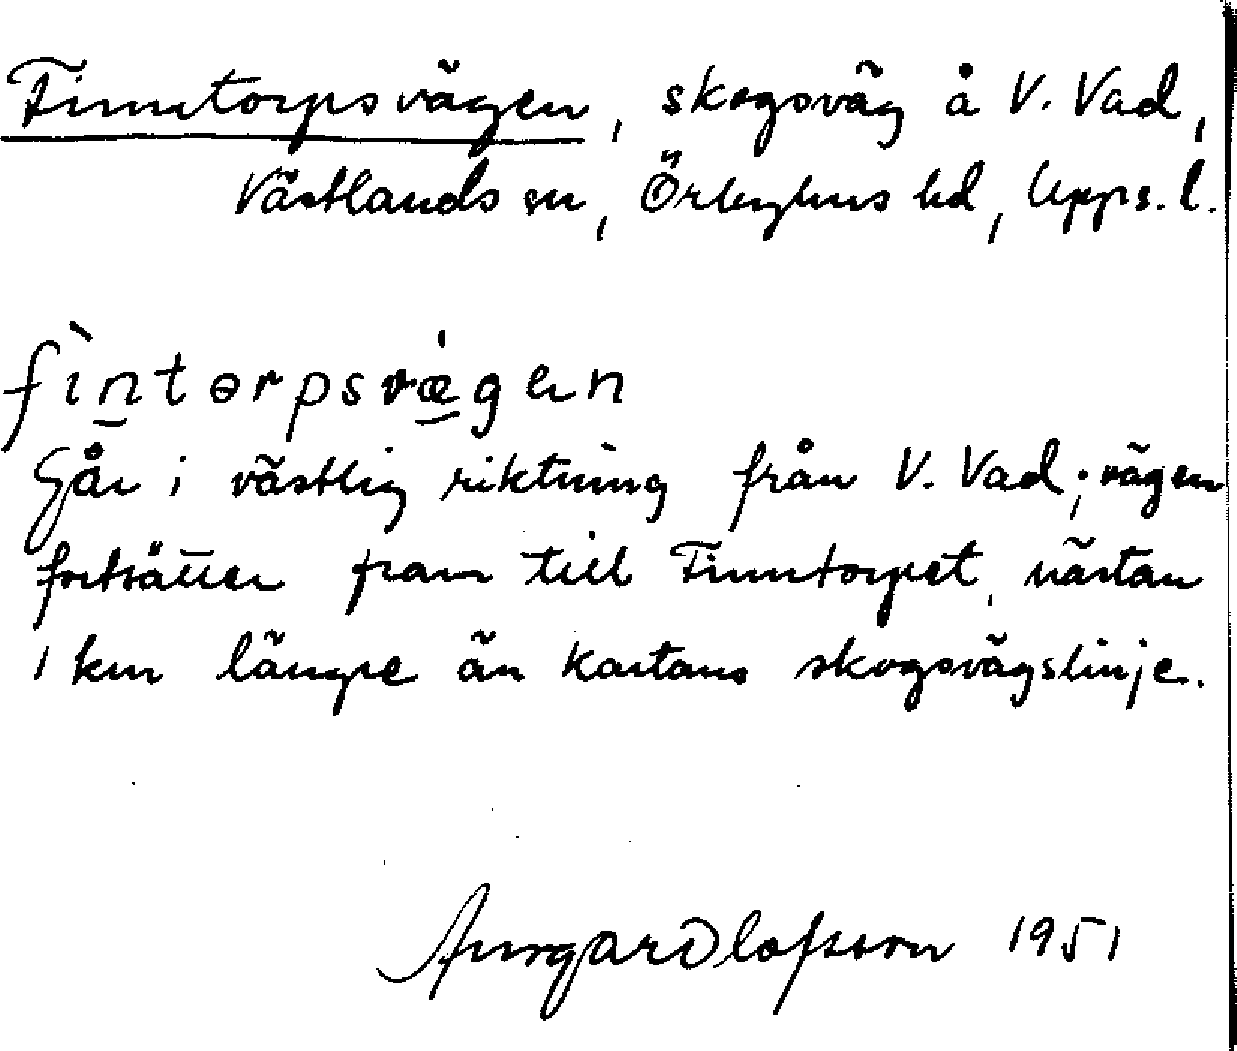 Finntorpsvägen, skogsväg å V. Vad,
Västlands sn, Örbyhus hd, Upps. l.
fìn̲tərpsvæ̲̍gen
Går i västlig riktning från V. Vad; vägen
fortsätter fram till Finntorpet, nästan
1 km längre än kartans skogsvägslinje.
Olofsson 1951